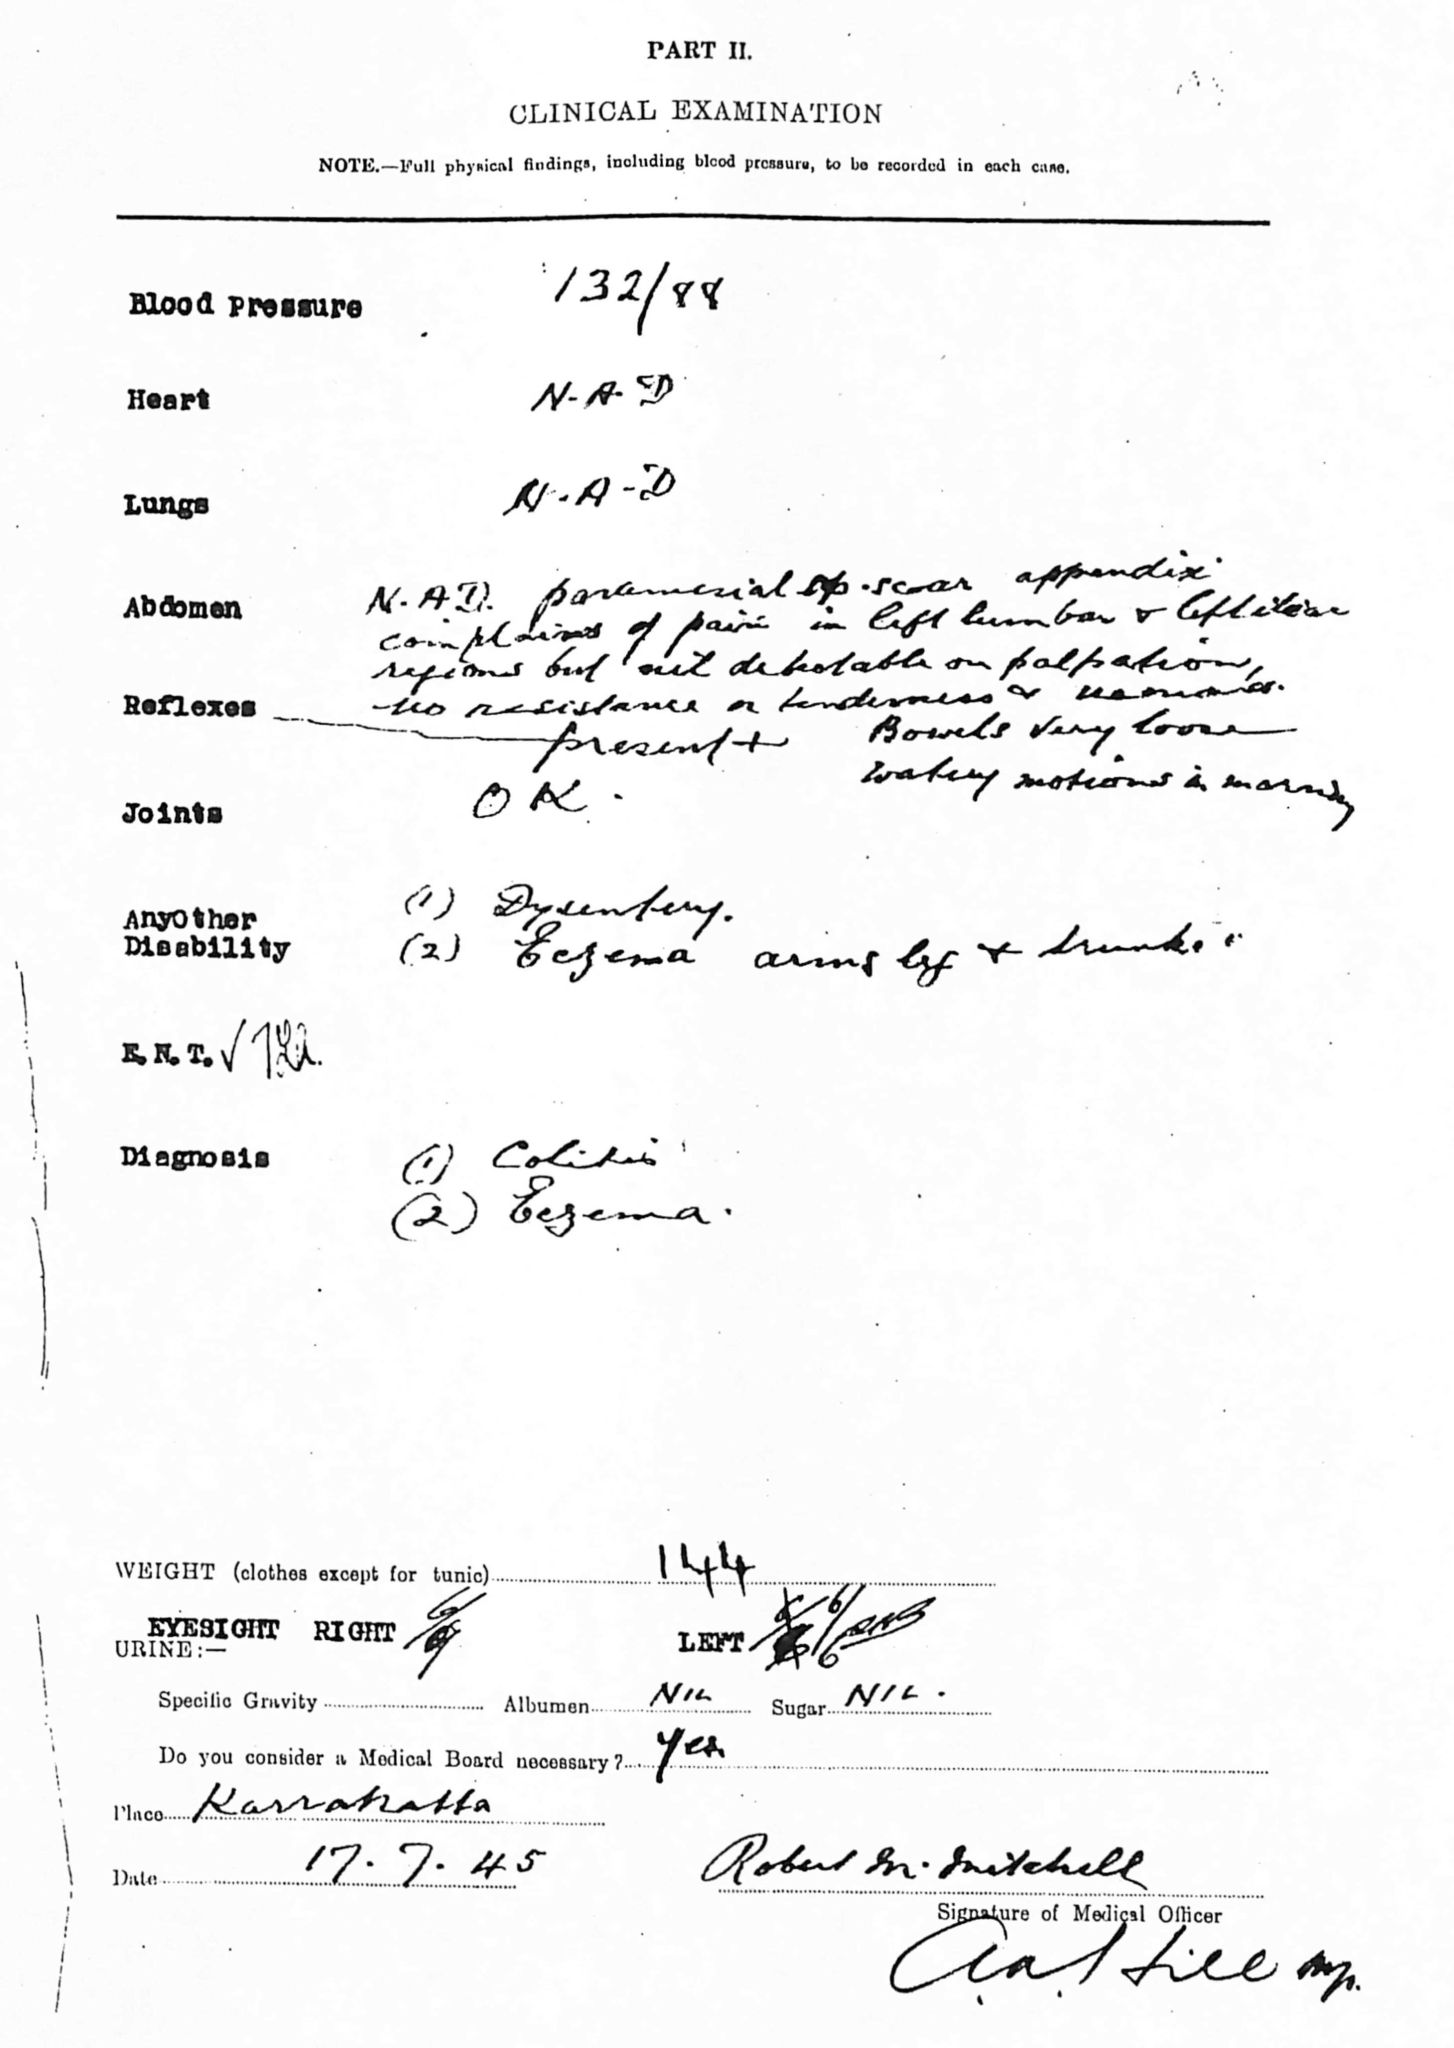 PART II.
CLINICAL EXAMINATION
NOTE.—Full physical findings, including blood pressure, to be recorded in each case.
Blood Pressure 132/88
Heart N.A.D
Lungs N.A.D
Abdomen N.A.D. op. scar appendix
complains of pain in left lumbar & left
regions but not on palpation,
no resistance or tenderness
Reflexes present + Bowels very loose
watery motions in morning
Joints OK.
AnyOther (1) Dysentery.
Disability (2) Eczema arms leg & trunk
E.N.T. √
Diagnosis (1) Colitis
(2) Eczema.
WEIGHT (clothes except for tunic) 144
EYESIGHT RIGHT 6/9 LEFT 6/6
URINE:—
Specific Gravity Albumen NIL Sugar NIL.
Do you consider a Medical Board necessary? Yes
Place Karrakatta
Date 17.7.45
Robert M. Mitchell
Signature of Medical Officer